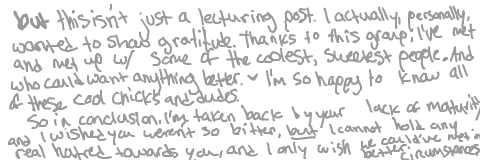 but this isn't just a lecturing post. I actually, personally,
wanted to show gratitude. Thanks to this group, I've met
and met up w/ some of the coolest, sweetest people. And
who could want anything better. I'm so happy to know all
of these cool chicks and dudes.
So in conclusion, I'm taken back by your lack of maturity
and I wished you weren't so bitter, but I cannot hold any
real hatred towards you, and I only wish we could've met in
better circumstances